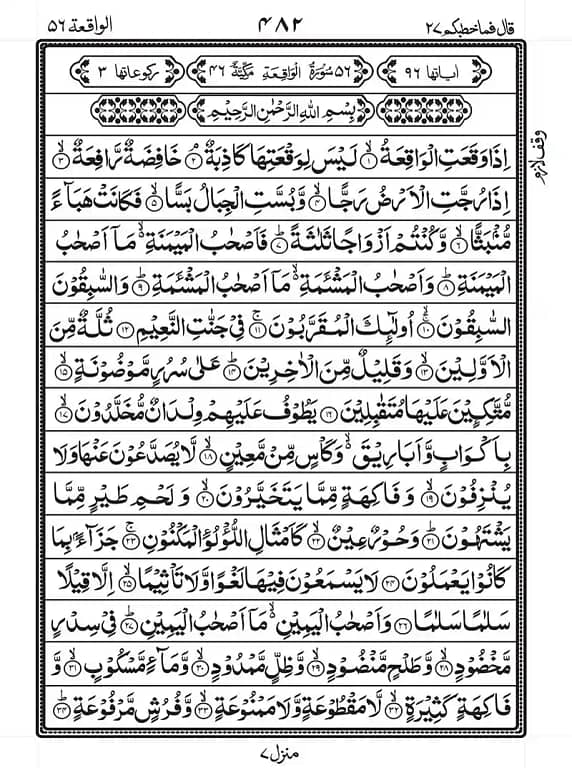 قال فما خطبكم ٢٧ ٤٨٢ الواقعة ٥٦
اٰیاتها ٩٦ ٥٦ سُوْرَةُ الْوَاقِعَةِ مَكِّيَّةٌ ٤٦ ركوعاتها ٣
بِسْمِ اللهِ الرَّحْمٰنِ الرَّحِيْمِ
وقف لازم
اِذَا وَقَعَتِ الْوَاقِعَةُ ۙ﴿١﴾ لَيْسَ لِوَقْعَتِهَا كَاذِبَةٌ ۘ﴿٢﴾ خَافِضَةٌ رَّافِعَةٌ ۙ﴿٣﴾
اِذَا رُجَّتِ الْاَرْضُ رَجًّا ۙ﴿٤﴾ وَّبُسَّتِ الْجِبَالُ بَسًّا ۙ﴿٥﴾ فَكَانَتْ هَبَآءً
مُّنْۢبَثًّا ۙ﴿٦﴾ وَّكُنْتُمْ اَزْوَاجًا ثَلٰثَةً ؕ﴿٧﴾ فَاَصْحٰبُ الْمَيْمَنَةِ ۙ مَاۤ اَصْحٰبُ
الْمَيْمَنَةِ ؕ﴿٨﴾ وَاَصْحٰبُ الْمَشْئَمَةِ ۙ مَاۤ اَصْحٰبُ الْمَشْئَمَةِ ؕ﴿٩﴾ وَالسّٰبِقُوْنَ
السّٰبِقُوْنَ ۚۙ﴿١٠﴾ اُولٰٓئِكَ الْمُقَرَّبُوْنَ ۚ﴿١١﴾ فِيْ جَنّٰتِ النَّعِيْمِ ﴿١٢﴾ ثُلَّةٌ مِّنَ
الْاَوَّلِيْنَ ۙ﴿١٣﴾ وَقَلِيْلٌ مِّنَ الْاٰخِرِيْنَ ؕ﴿١٤﴾ عَلٰى سُرُرٍ مَّوْضُوْنَةٍ ۙ﴿١٥﴾
مُّتَّكِـِٕيْنَ عَلَيْهَا مُتَقٰبِلِيْنَ ﴿١٦﴾ يَطُوْفُ عَلَيْهِمْ وِلْدَانٌ مُّخَلَّدُوْنَ ۙ﴿١٧﴾
بِاَكْوَابٍ وَّاَبَارِيْقَ ۙ وَكَاْسٍ مِّنْ مَّعِيْنٍ ۙ﴿١٨﴾ لَّا يُصَدَّعُوْنَ عَنْهَا وَلَا
يُنْزِفُوْنَ ۙ﴿١٩﴾ وَفَاكِهَةٍ مِّمَّا يَتَخَيَّرُوْنَ ۙ﴿٢٠﴾ وَلَحْمِ طَيْرٍ مِّمَّا
يَشْتَهُوْنَ ؕ﴿٢١﴾ وَحُوْرٌ عِيْنٌ ۙ﴿٢٢﴾ كَاَمْثَالِ اللُّؤْلُؤِ الْمَكْنُوْنِ ۚ﴿٢٣﴾ جَزَآءًۢ بِمَا
كَانُوْا يَعْمَلُوْنَ ﴿٢٤﴾ لَا يَسْمَعُوْنَ فِيْهَا لَغْوًا وَّلَا تَاْثِيْمًا ۙ﴿٢٥﴾ اِلَّا قِيْلًا
سَلٰمًا سَلٰمًا ﴿٢٦﴾ وَاَصْحٰبُ الْيَمِيْنِ ۙ مَاۤ اَصْحٰبُ الْيَمِيْنِ ؕ﴿٢٧﴾ فِيْ سِدْرٍ
مَّخْضُوْدٍ ۙ﴿٢٨﴾ وَّطَلْحٍ مَّنْضُوْدٍ ۙ﴿٢٩﴾ وَّظِلٍّ مَّمْدُوْدٍ ۙ﴿٣٠﴾ وَّمَآءٍ مَّسْكُوْبٍ ۙ﴿٣١﴾ وَّ
فَاكِهَةٍ كَثِيْرَةٍ ۙ﴿٣٢﴾ لَّا مَقْطُوْعَةٍ وَّلَا مَمْنُوْعَةٍ ۙ﴿٣٣﴾ وَّفُرُشٍ مَّرْفُوْعَةٍ ؕ﴿٣٤﴾
منزل ٧